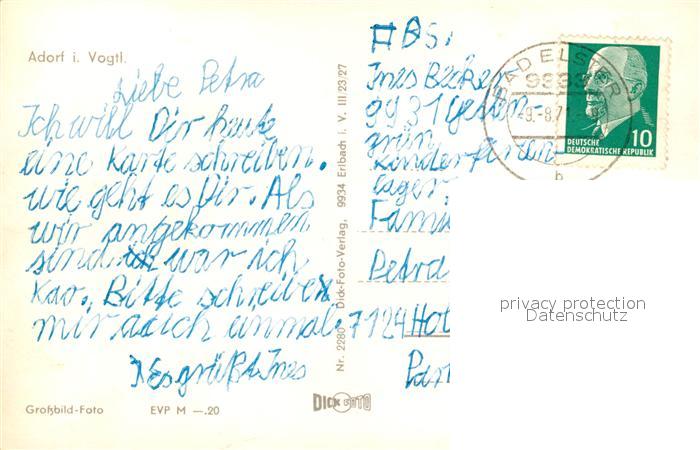 Adorf i. Vogtl.
Liebe Petra
Ich will Dir heute
eine Karte schreiben.
wie geht es Dir. Als
wir angekommen
sind war ich
Kao. Bitte schreibe
mir auch einmal.
Es grüßt Ines
Großbild-Foto EVP M —.20
DICK FOTO
Nr. 2280 Dick-Foto-Verlag, 9934 Erlbach i. V. III/23/27
ABS.
Ines Becker
9931
grün
Kinderferien-
lager.
Fami
Petra
7124 Hol
Par
BAD ELSTER
9933
-9.-8.71
b
10
DEUTSCHE
DEMOKRATISCHE REPUBLIK
privacy protection
Datenschutz